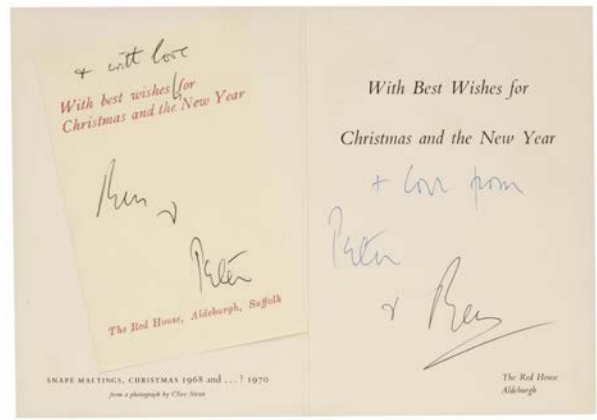 + with love
With best wishes for
Christmas and the New Year
Ben &
Peter
The Red House, Aldeburgh, Suffolk
SNAPE MALTINGS, CHRISTMAS 1968 and . . . ? 1970
from a photograph by Clive Strutt
With Best Wishes for
Christmas and the New Year
+ love from
Peter
& Ben
The Red House
Aldeburgh